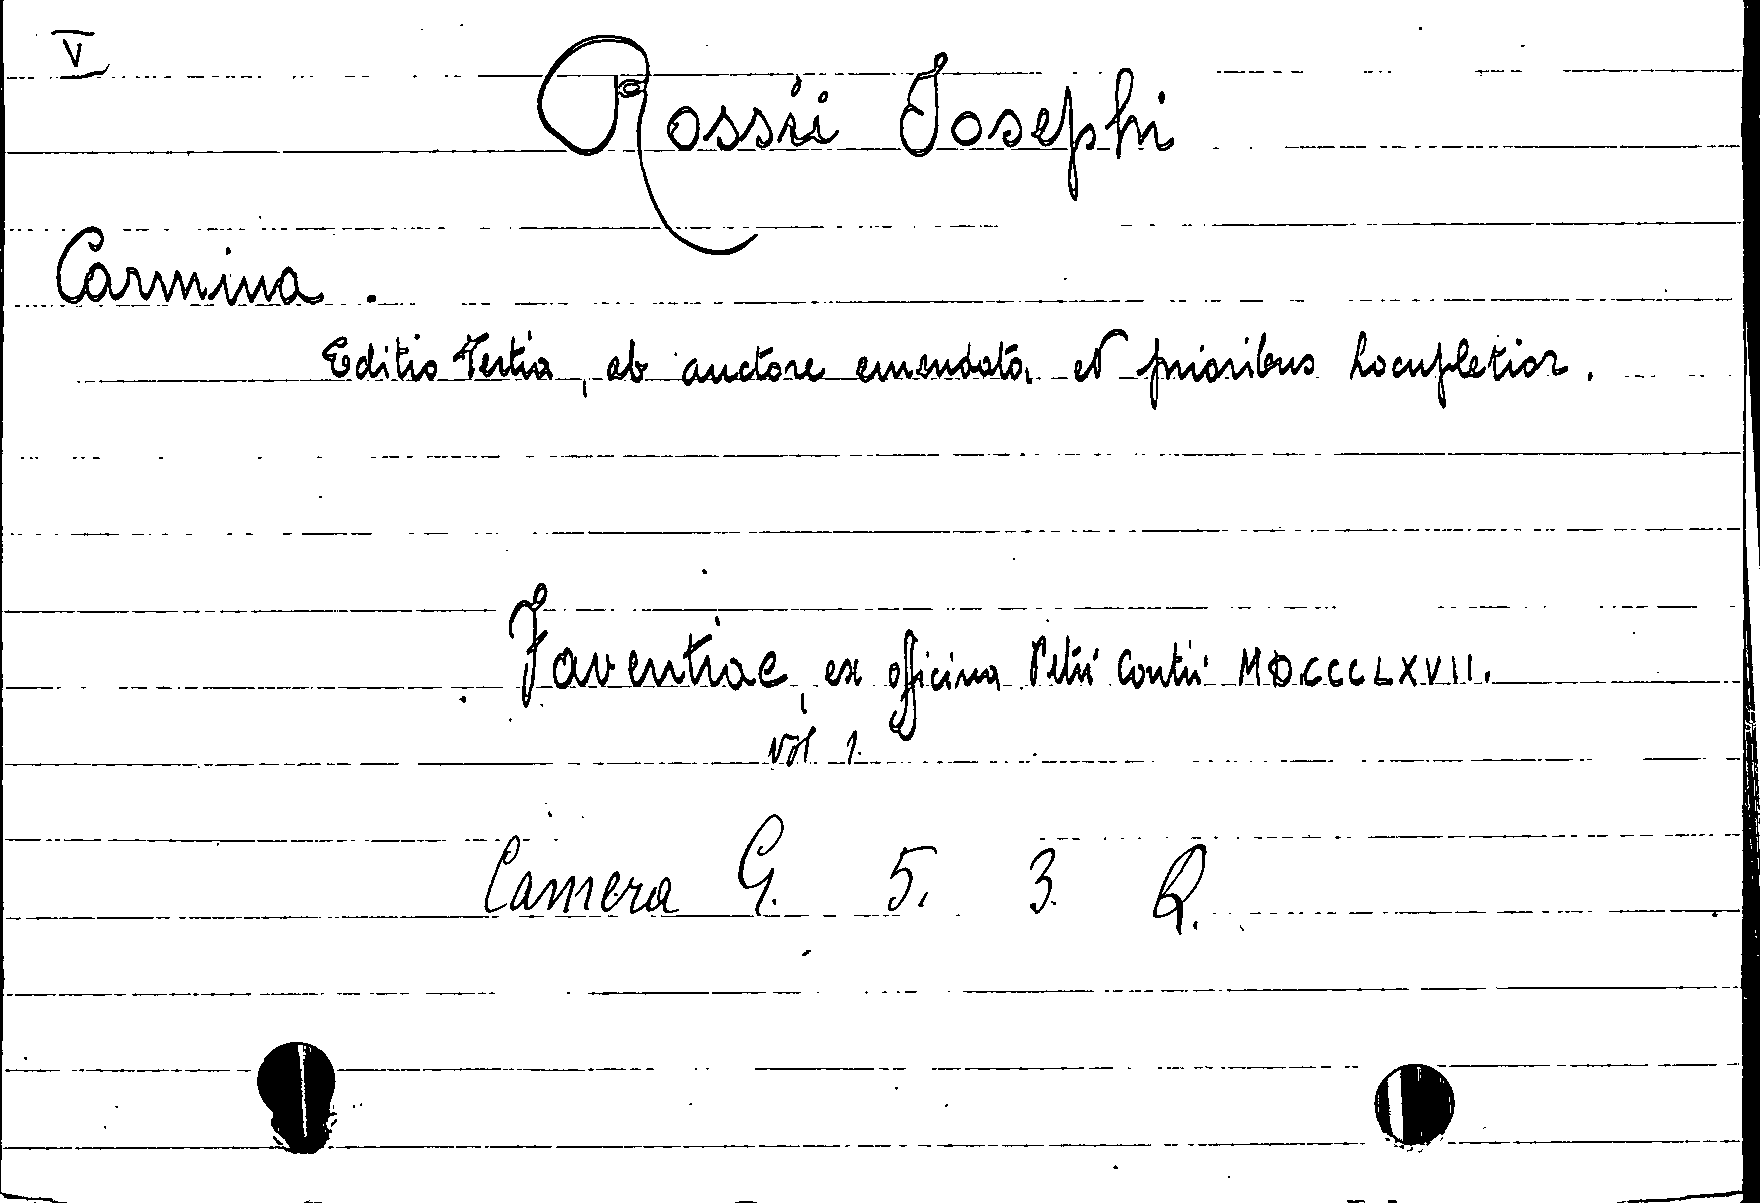 V
Rossii Josephi
Carmina.
Editio Tertia, ab auctore emendata, et prioribus locupletior.
Faventiae, ex officina Petri Contii MDCCCLXVII.
vol 1.
Camera G. 5. 3. R.